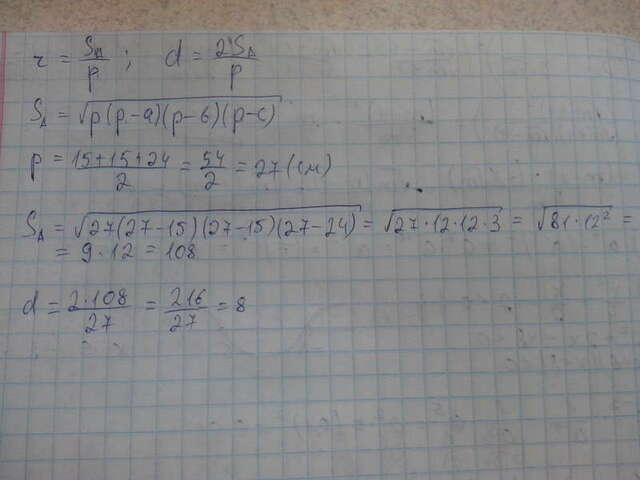 r = S_Δ/p ; d = 2S_Δ/p
S_Δ = √(p(p-a)(p-в)(p-c))
p = (15+15+24)/2 = 54/2 = 27 (см)
S_Δ = √(27(27-15)(27-15)(27-24)) = √(27·12·12·3) = √(81·12²) =
= 9·12 = 108
d = (2·108)/27 = 216/27 = 8